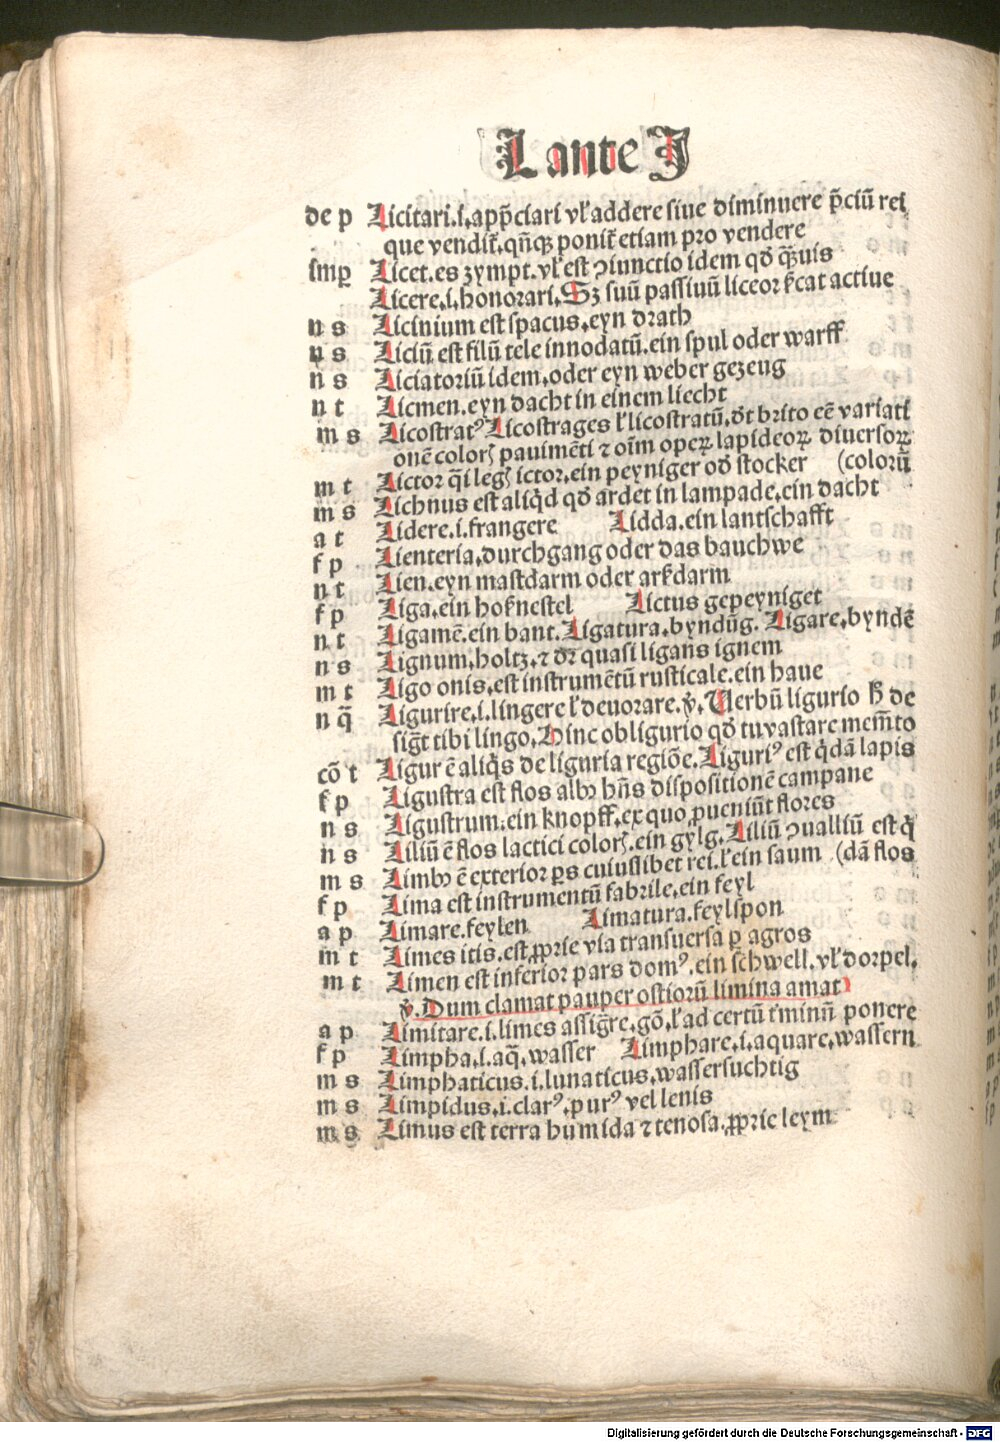 L ante J
de p Licitari.i.app̄ciari vł addere siue diminuere p̄ciū rei
que vendit᷑.qn̄qꝫ ponit᷑ etiam pro vendere
imp̱ Licet.es zympt.vł est ↄiunctio idem qđ qͣ̄uis
Licere.i.honorari.Sꝫ suū passiuū liceor ſ́cat actiue
n s Licinium est spacus.eyn drath
n s Liciū est filū tele innodatū.ein spul oder warff
n s Liciatoriū idem.oder eyn weber gezeug
n t Licmen.eyn dacht in einem liecht
m s Licostratꝰ Licostrages ł licostratū.đt brito eē variati
onē colorꝝ pauimēti ⁊ oīm operꝝ lapideorꝝ diuersorꝝ
m t Lictor q̄i legꝭ ictor.ein peyniger ođ stocker (colorū
m s Lichnus est aliq̇d qđ ardet in lampade.ein dacht
a t Lidere.i.frangere Lidda.ein lantschafft
f p Lienteria.durchgang oder das bauchwe
n t Lien.eyn mastdarm oder arßdarm
f p Liga.ein hoßnestel Lictus gepeyniget
n t Ligamē.ein bant.Ligatura.byndūg. Ligare.byndē
n s Lignum.holtz.⁊ dr̄ quasi ligans ignem
m t Ligo onis.est instrumētū rusticale.ein haue
n q̄ Ligurire.i.lingere ł deuorare.v̇.Uerbū ligurio ħ de
siḡt tibi lingo.Hinc obligurio qđ tu vastare mem̄to
cō t Ligur ē aliq̇s de liguria regiōe.Liguriꝰ est q̇dā lapis
f p Ligustra est flos albꝰ hn̄s dispositionē campane
n s Ligustrum.ein knopff.ex quo ꝓueniūt flores
n s Liliū ē flos lactici colorꝭ.ein gylg.Liliū ↄualliū est q̇
m s Limbꝰ ē exterior ꝑs cuiuslibet rei.ł ein saum (dā flos
f p Lima est instrumentū fabrile.ein feyl
a p Limare.feylen Limatura.feylspon
m t Limes itis.est ꝓprie via transuersa ꝑ agros
m t Limen est inferior pars domꝰ.ein schwell.vł dorpel.
v̇.Dum clamat pauper ostiorū limina amat
a p Limitare.i.limes assiḡre.gō.ł ad certū t᷑minū ponere
f p Limpha.i.aq̄.wasser Limphare.i.aquare.wassern
m s Limphaticus.i.lunaticus.wassersuchtig
m s Limpidus.i.clarꝰ.purꝰ vel lenis
m s Limus est terra humida ⁊ tenosa.ꝓprie leym
Digitalisierung gefördert durch die Deutsche Forschungsgemeinschaft - DFG